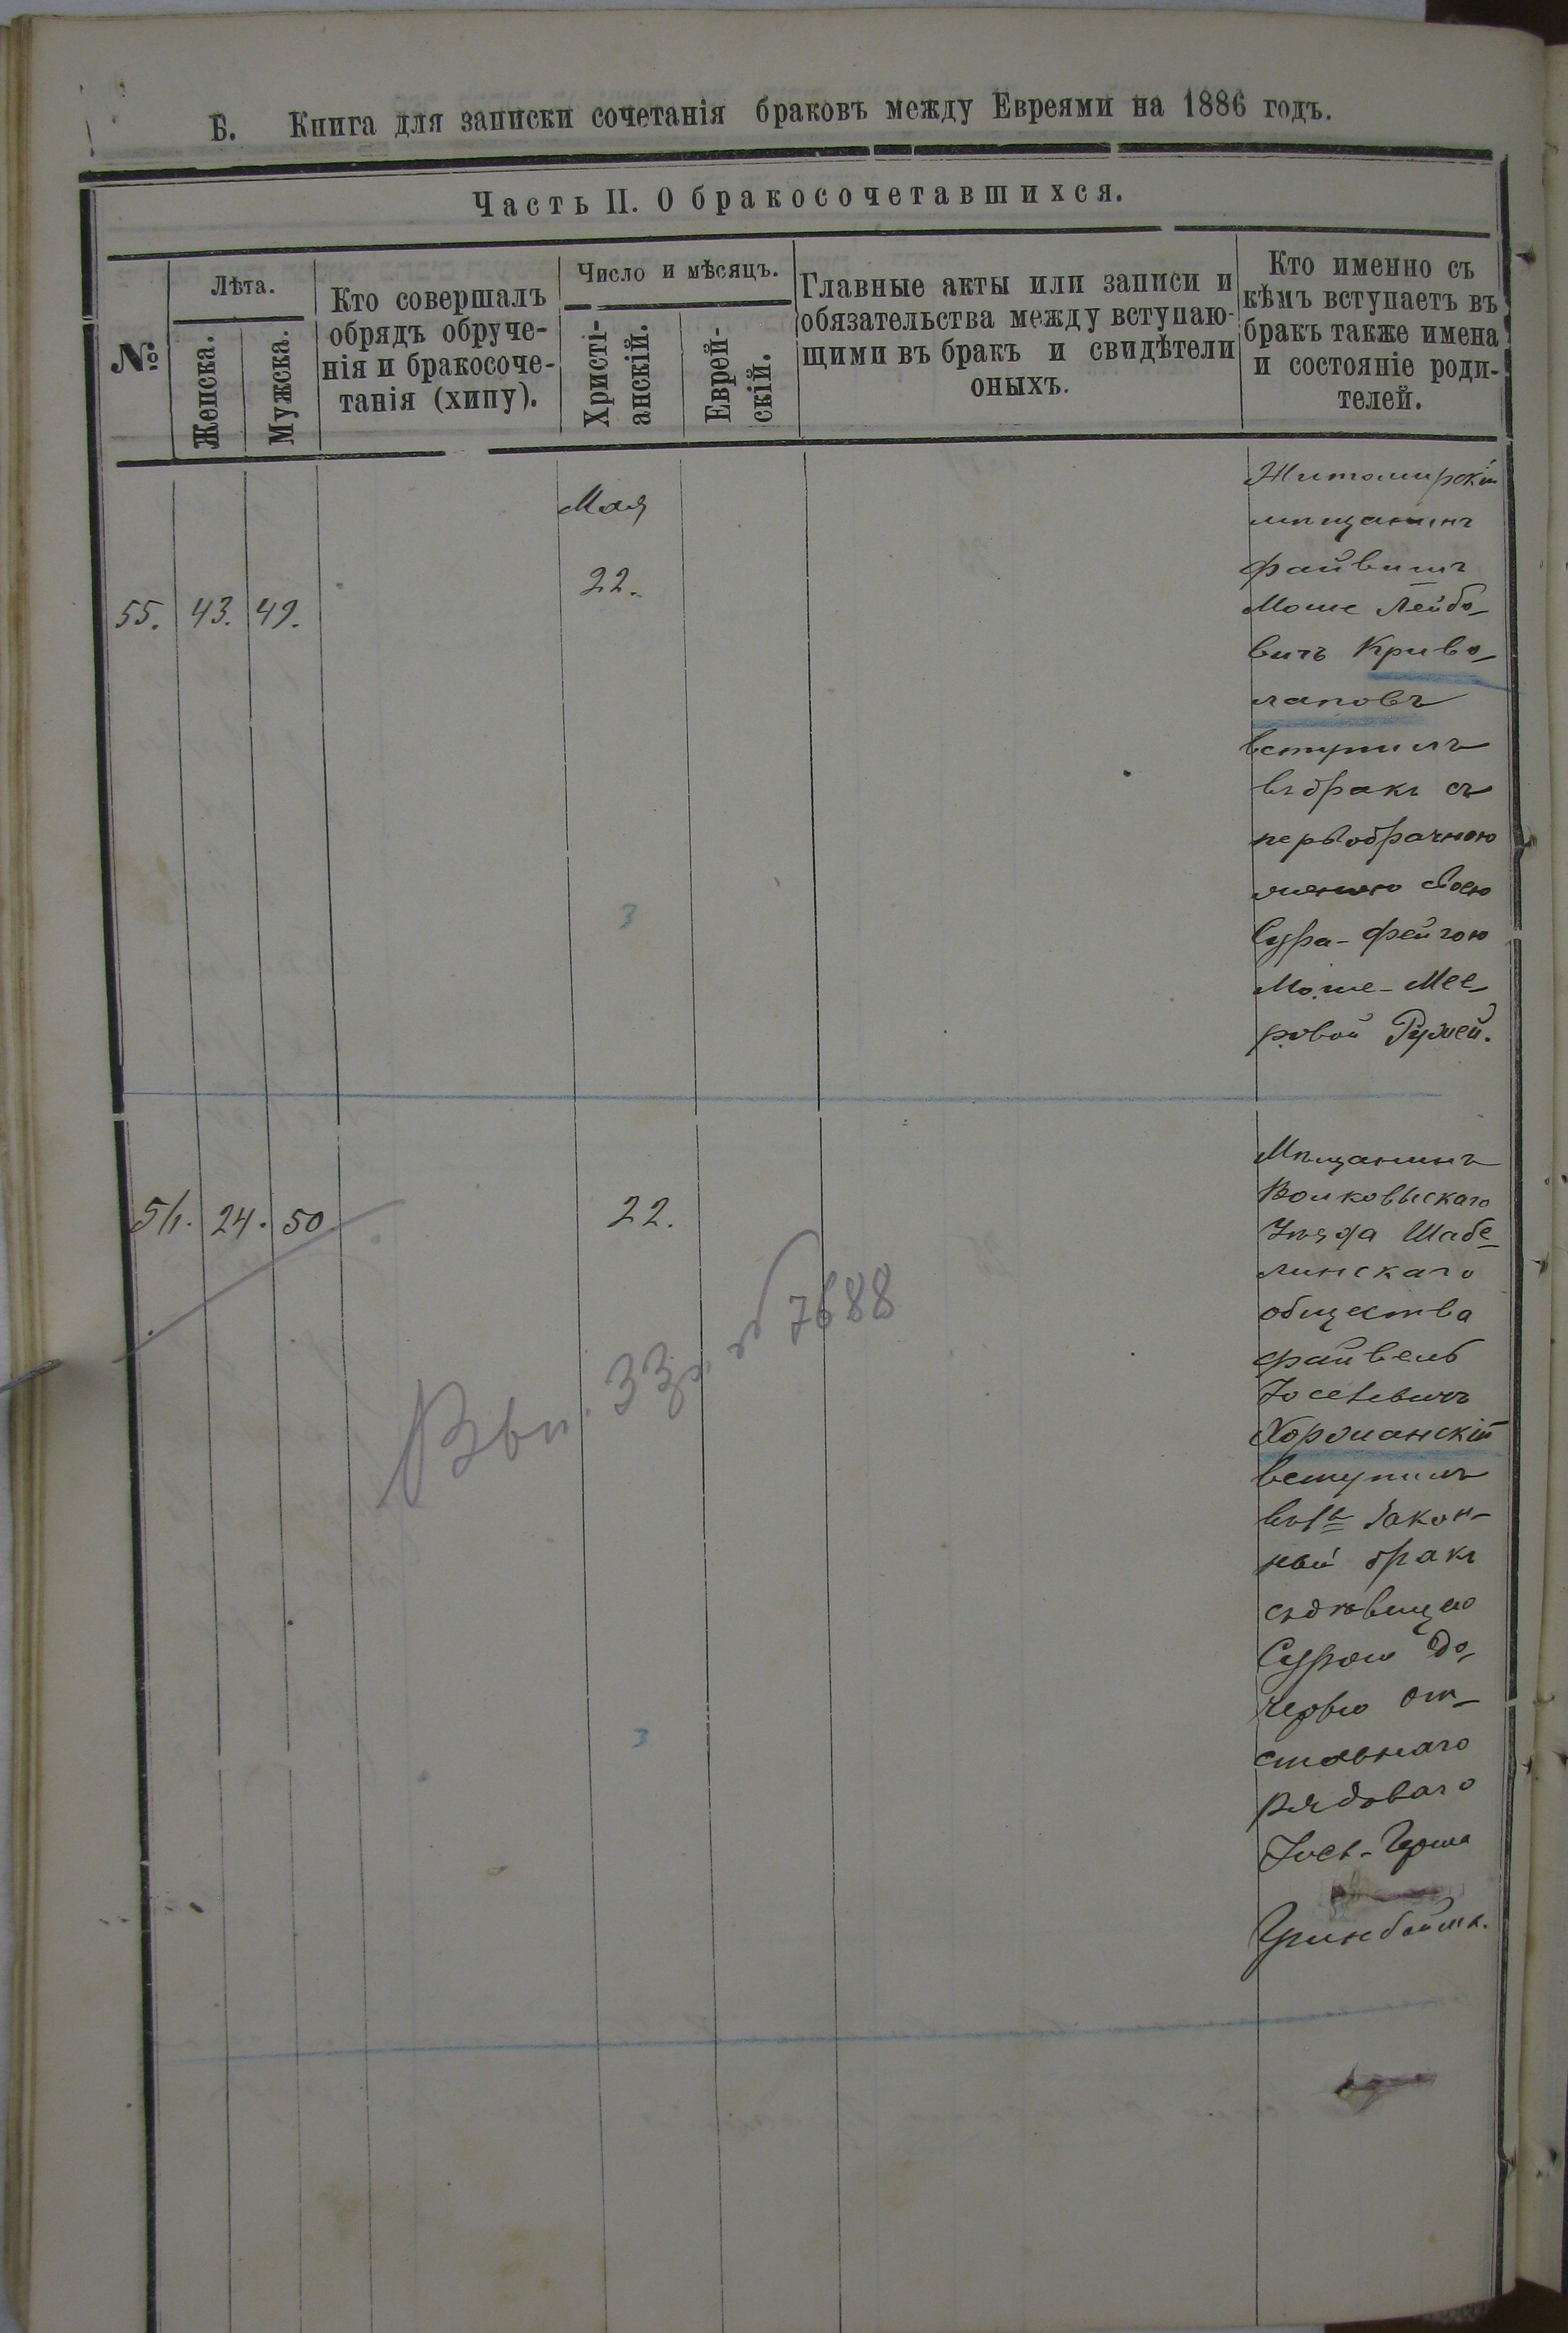 Б. Книга для записки сочетанія браковъ между Евреями на 1886 годъ.
Часть II. О бракосочетавшихся.
№
Лѣта.
Женска.
Мужска.
Кто совершалъ
обрядъ обруче-
нія и бракосоче-
танія (хипу).
Число и мѣсяцъ.
Христі-
анскій.
Еврей-
скій.
Главные акты или записи и
обязательства между вступаю-
щими въ бракъ и свидѣтели
оныхъ.
Кто именно съ
кѣмъ вступаетъ въ
бракъ также имена
и состояніе роди-
телей.
55. 43. 49.
Мая
22.
3
Житомирскій
мѣщанинъ
Файвишъ
Моше Лейбо-
вичъ Криво-
лаповъ
вступилъ
въ бракъ съ
первобрачною
женою своею
Сура-Фейгою
Моше-Мее-
ровой
24. 50
22.
3
№ 7688
Мѣщанинъ
Волковыскаго
Уѣзда Шабе-
линскаго
общества
Файвель
Хорошанскій
вступилъ
въ 1й закон-
ный бракъ
съ дѣвицею
Сурою до-
черью от-
ставнаго
рядоваго